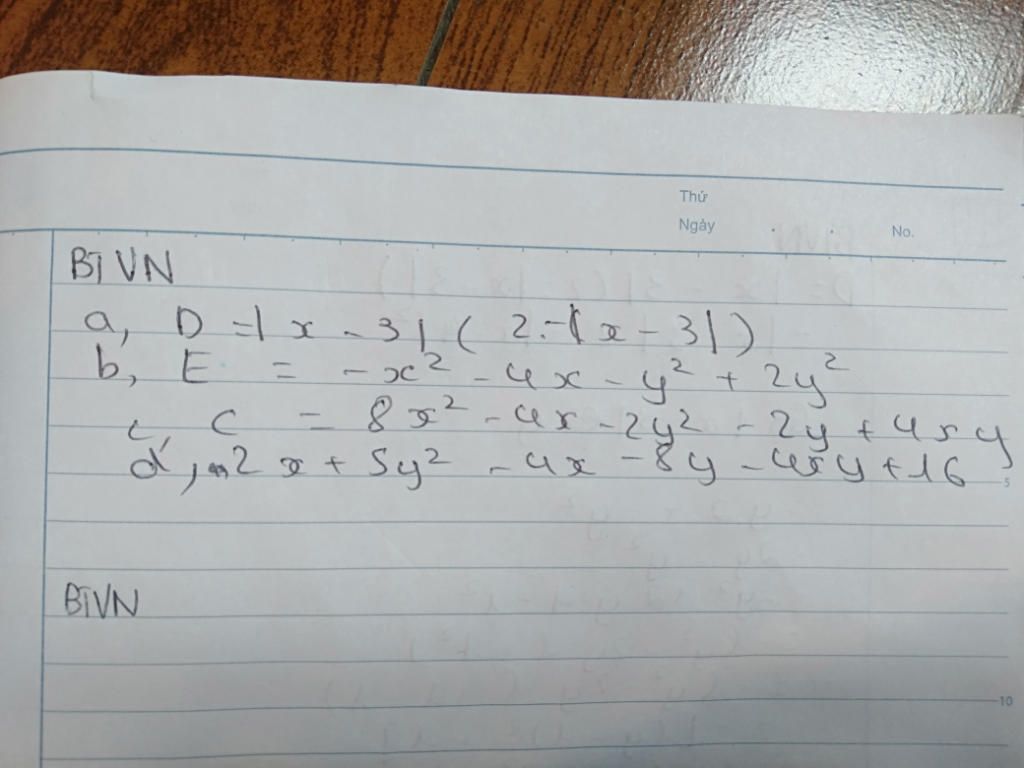 Thứ
Ngày . . No.
BTVN
a, D = |x - 3| ( 2 - |x - 3| )
b, E = -x² - 4x - y² + 2y²
c, C = 8x² - 4x - 2y² - 2y + 4xy
d, 2x + 5y² - 4x - 8y - 4xy + 16
5
BTVN
10